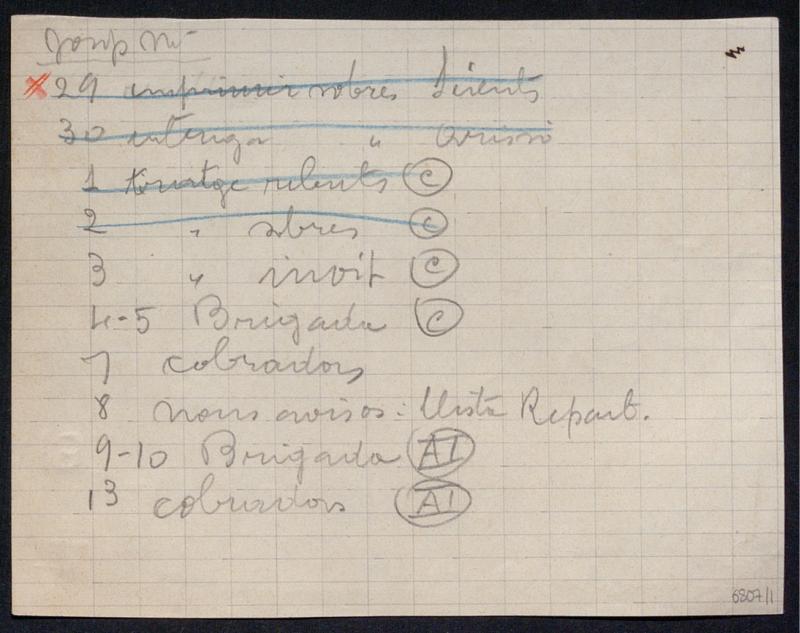 Josep Mª
29 imprimir sobres
30 entrega "
1 tiratge rebuts C
2 " sobres C
3 " invit C
4-5 Brigada C
7 cobradors
8 nous avisos: Llista Repart.
9-10 Brigada AI
13 cobradors AI
6807/1